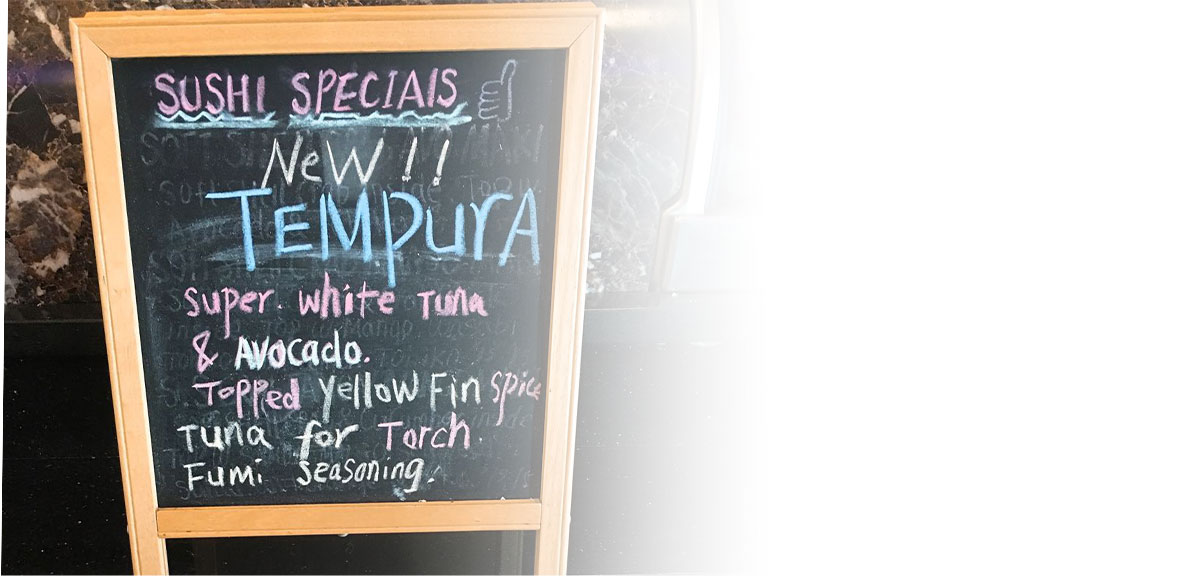 SUSHI SPECIAlS
NeW !!
TEMpUrA
super. white Tuna
& AVOcado.
Topped Yellow Fin spice
Tuna for Torch.
Fumi seasoning.